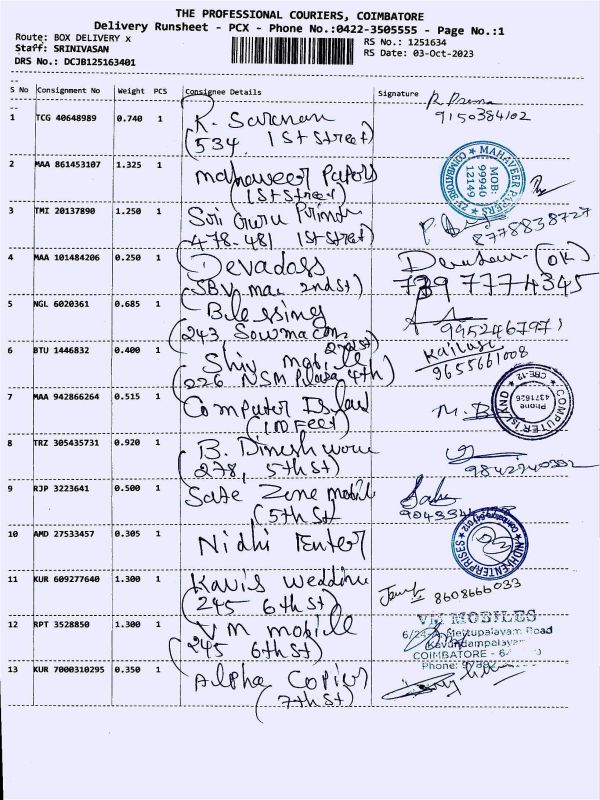 THE PROFESSIONAL COURIERS, COIMBATORE
Delivery Runsheet - PCX - Phone No.:0422-3505555 - Page No.:1
Route: BOX DELIVERY x
RS No.: 1251634
Staff: SRINIVASAN
RS Date: 03-Oct-2023
DRS No.: DCJB125163401
S No Consignment No Weight PCS Consignee Details Signature
1 TCG 40648989 0.740 1 K. Saranan
(534, 1st Street)
9150384102
2 MAA 861453107 1.325 1 Mahaveer Papers
(1st Street)
MAHAVEER PAPERS
COIMBATORE-
MOB:
99940
12149
3 TMI 20137890 1.250 1 Sri Guru
478-481 1st Street)
8778838727
4 MAA 101484206 0.250 1 Devadass
(SBV 2nd St)
(OK)
739 7774345
5 NGL 6020361 0.685 1 Blessing
(243, Sowmac
2nd St)
9952467971
6 BTU 1446832 0.400 1 Shiv mobile
(226 NSM Plaza 4th)
9655661008
7 MAA 942866264 0.515 1 Computer Island
(100 Feet)
M. B
COMPUTER ISLAND
CBE-12
Phone
4371626
8 TRZ 305435731 0.920 1 B. Dinesh
(278, 5th St)
9 RJP 3223641 0.500 1 Safe Zone mobil
(5th St)
10 AMD 27533457 0.305 1 Nidhi Enter
NIDHI ENTERPRISES
11 KUR 609277640 1.300 1 Kavis wedding
(245 6th St)
8608666033
12 RPT 3528850 1.300 1 VM mobile
(245 6th St)
VM MOBILES
6/24- Mettupalayam Road
Kavundampalayam
COIMBATORE - 64
Phone:
13 KUR 7000310295 0.350 1 Alpha Copier
(7th St)